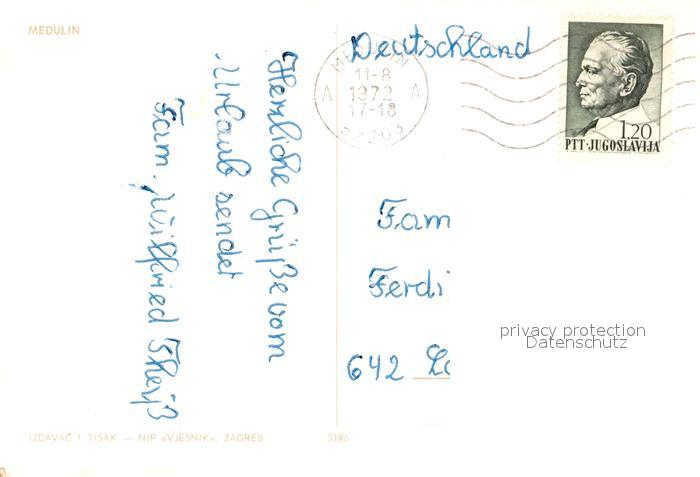 MEDULIN
Herzliche Grüße vom
Urlaub sendet
Fam. Wilfried
Deutschland
MEDULIN
11-8
A 1972 A
17-18
52203
1.20
PTT-JUGOSLAVIJA
Fam
Ferdi
642
privacy protection
Datenschutz
IZDAVAČ I TISAK — NIP »VJESNIK«, ZAGREB
3196